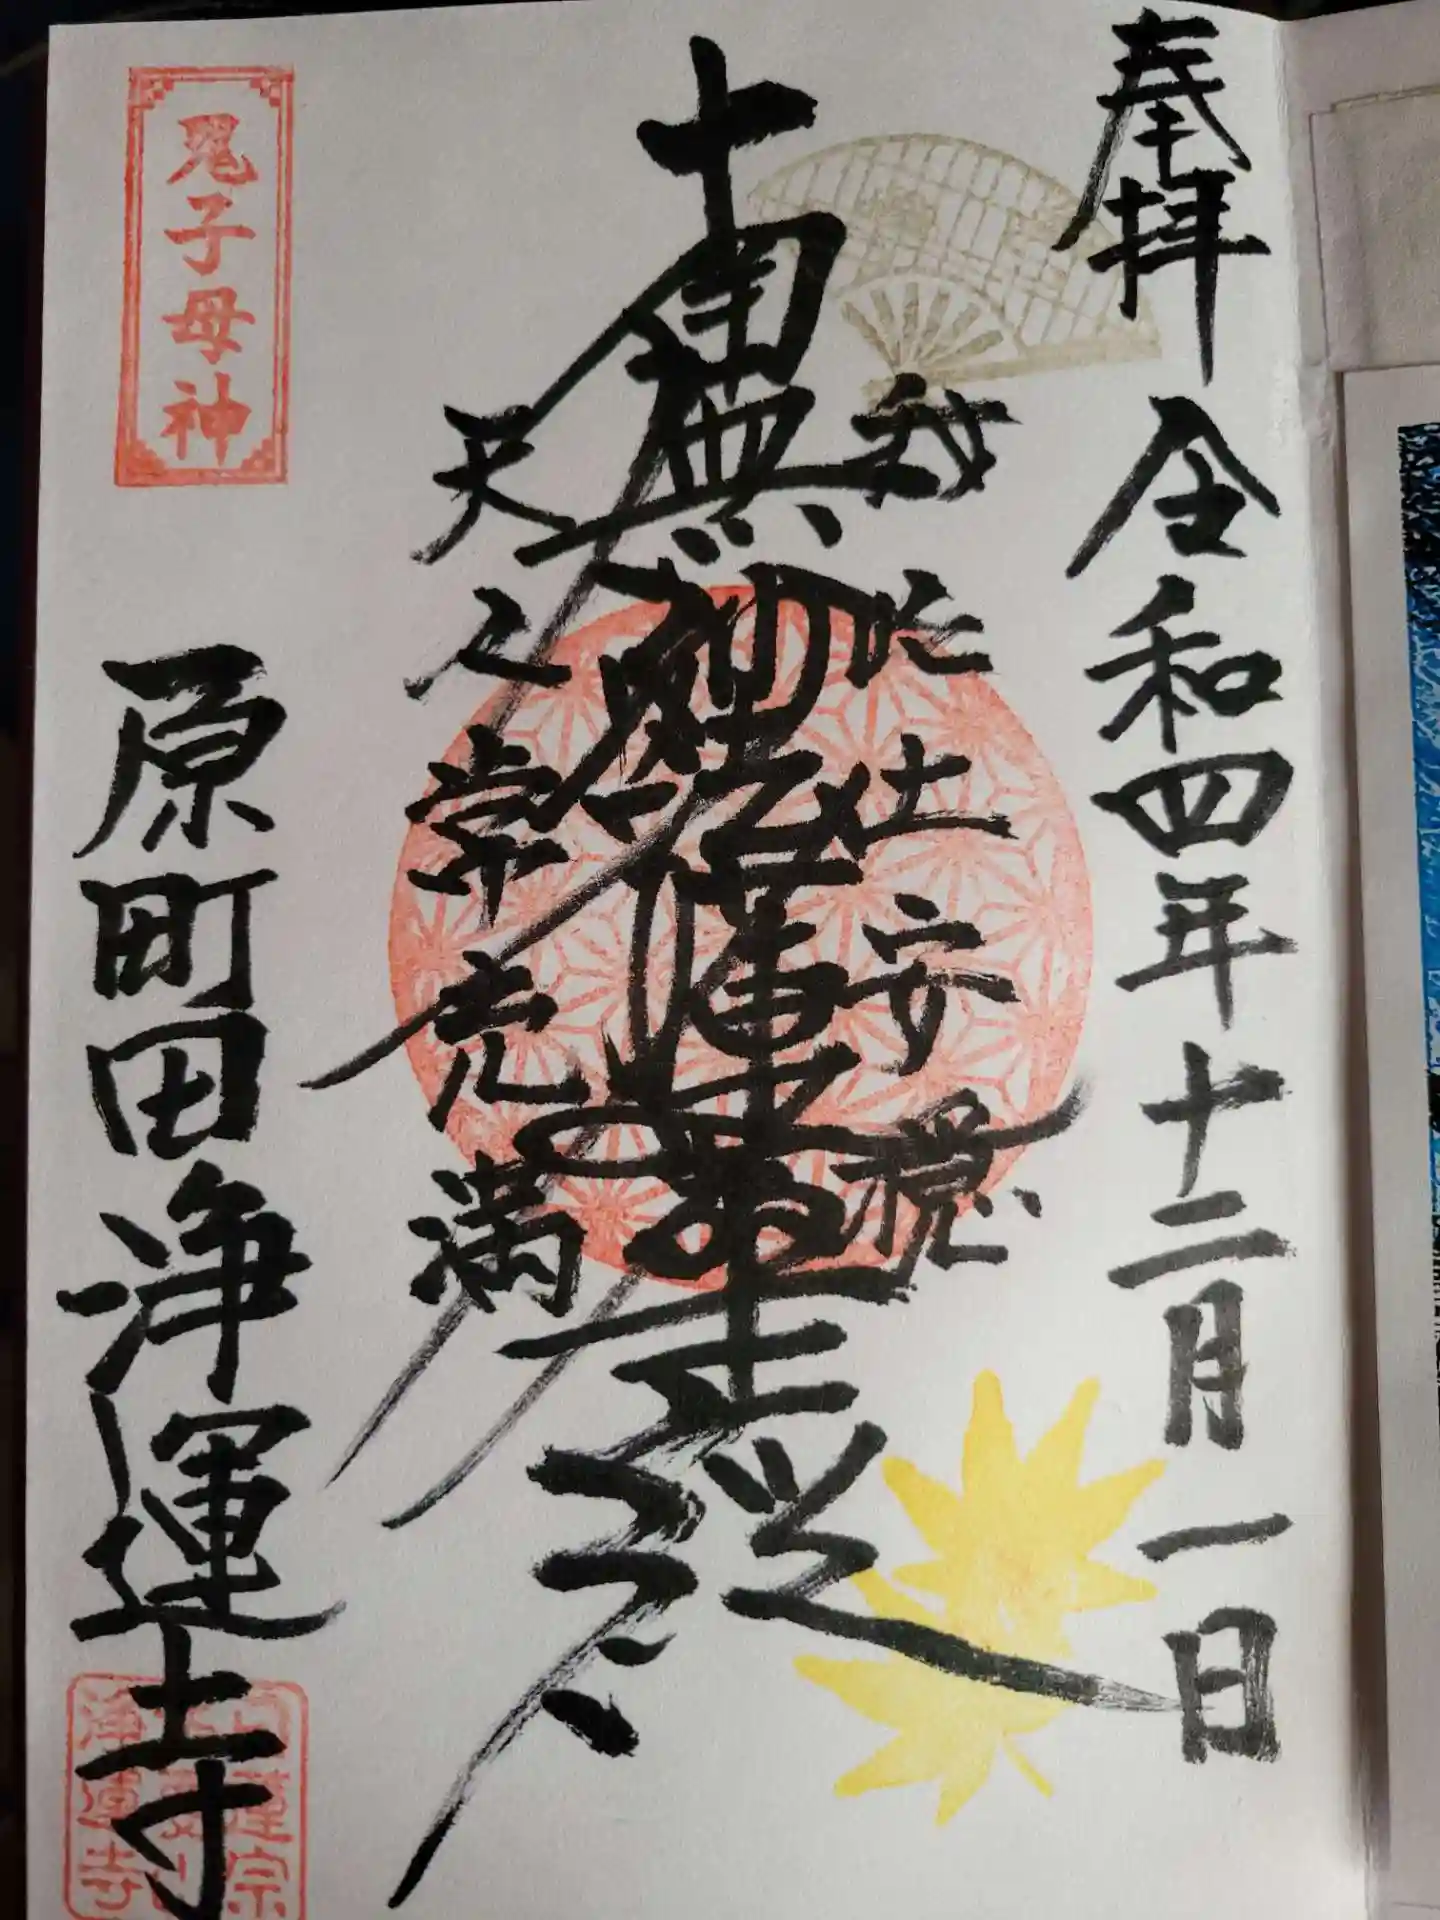 奉拝 令和四年十二月一日
我此土安穏
南無妙法蓮華経
天人常充満
鬼子母神
原町田浄運寺
日蓮宗
浄運寺